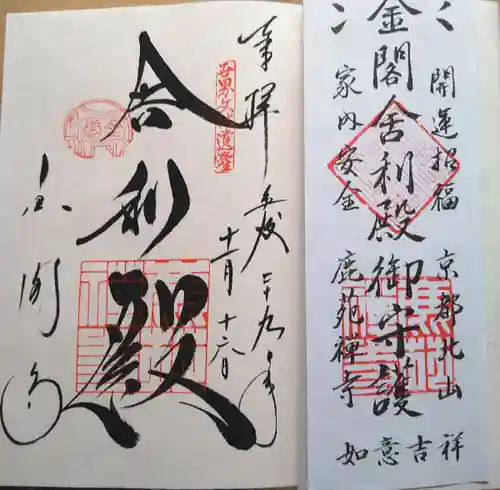 奉拝
平成二十九年
十一月十六日
世界文化遺産
舎利殿
金閣寺
開運招福
京都北山
金閣舎利殿御守護
家内安全
鹿苑禅寺
如意吉祥